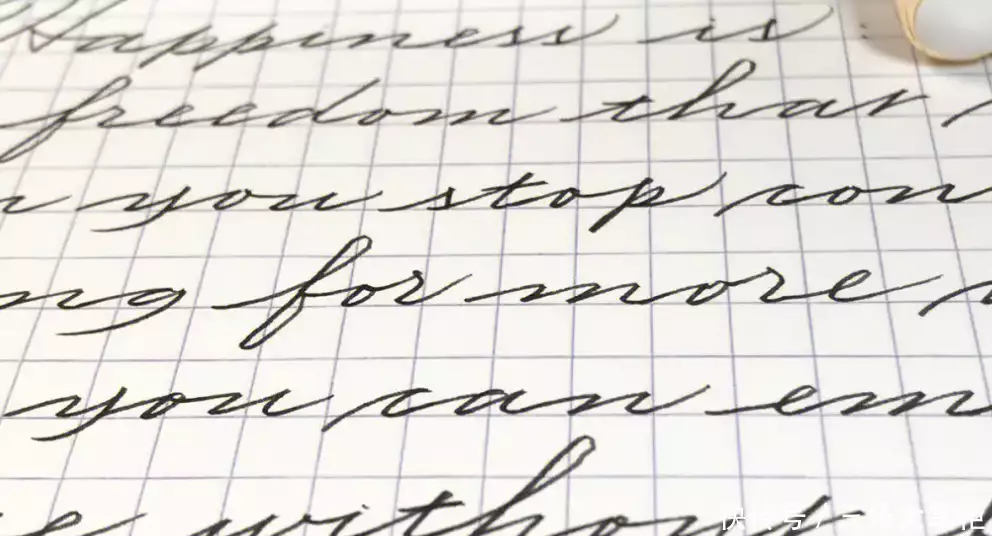 Happiness is
freedom that
n you stop con
ng for more
you can em
e without